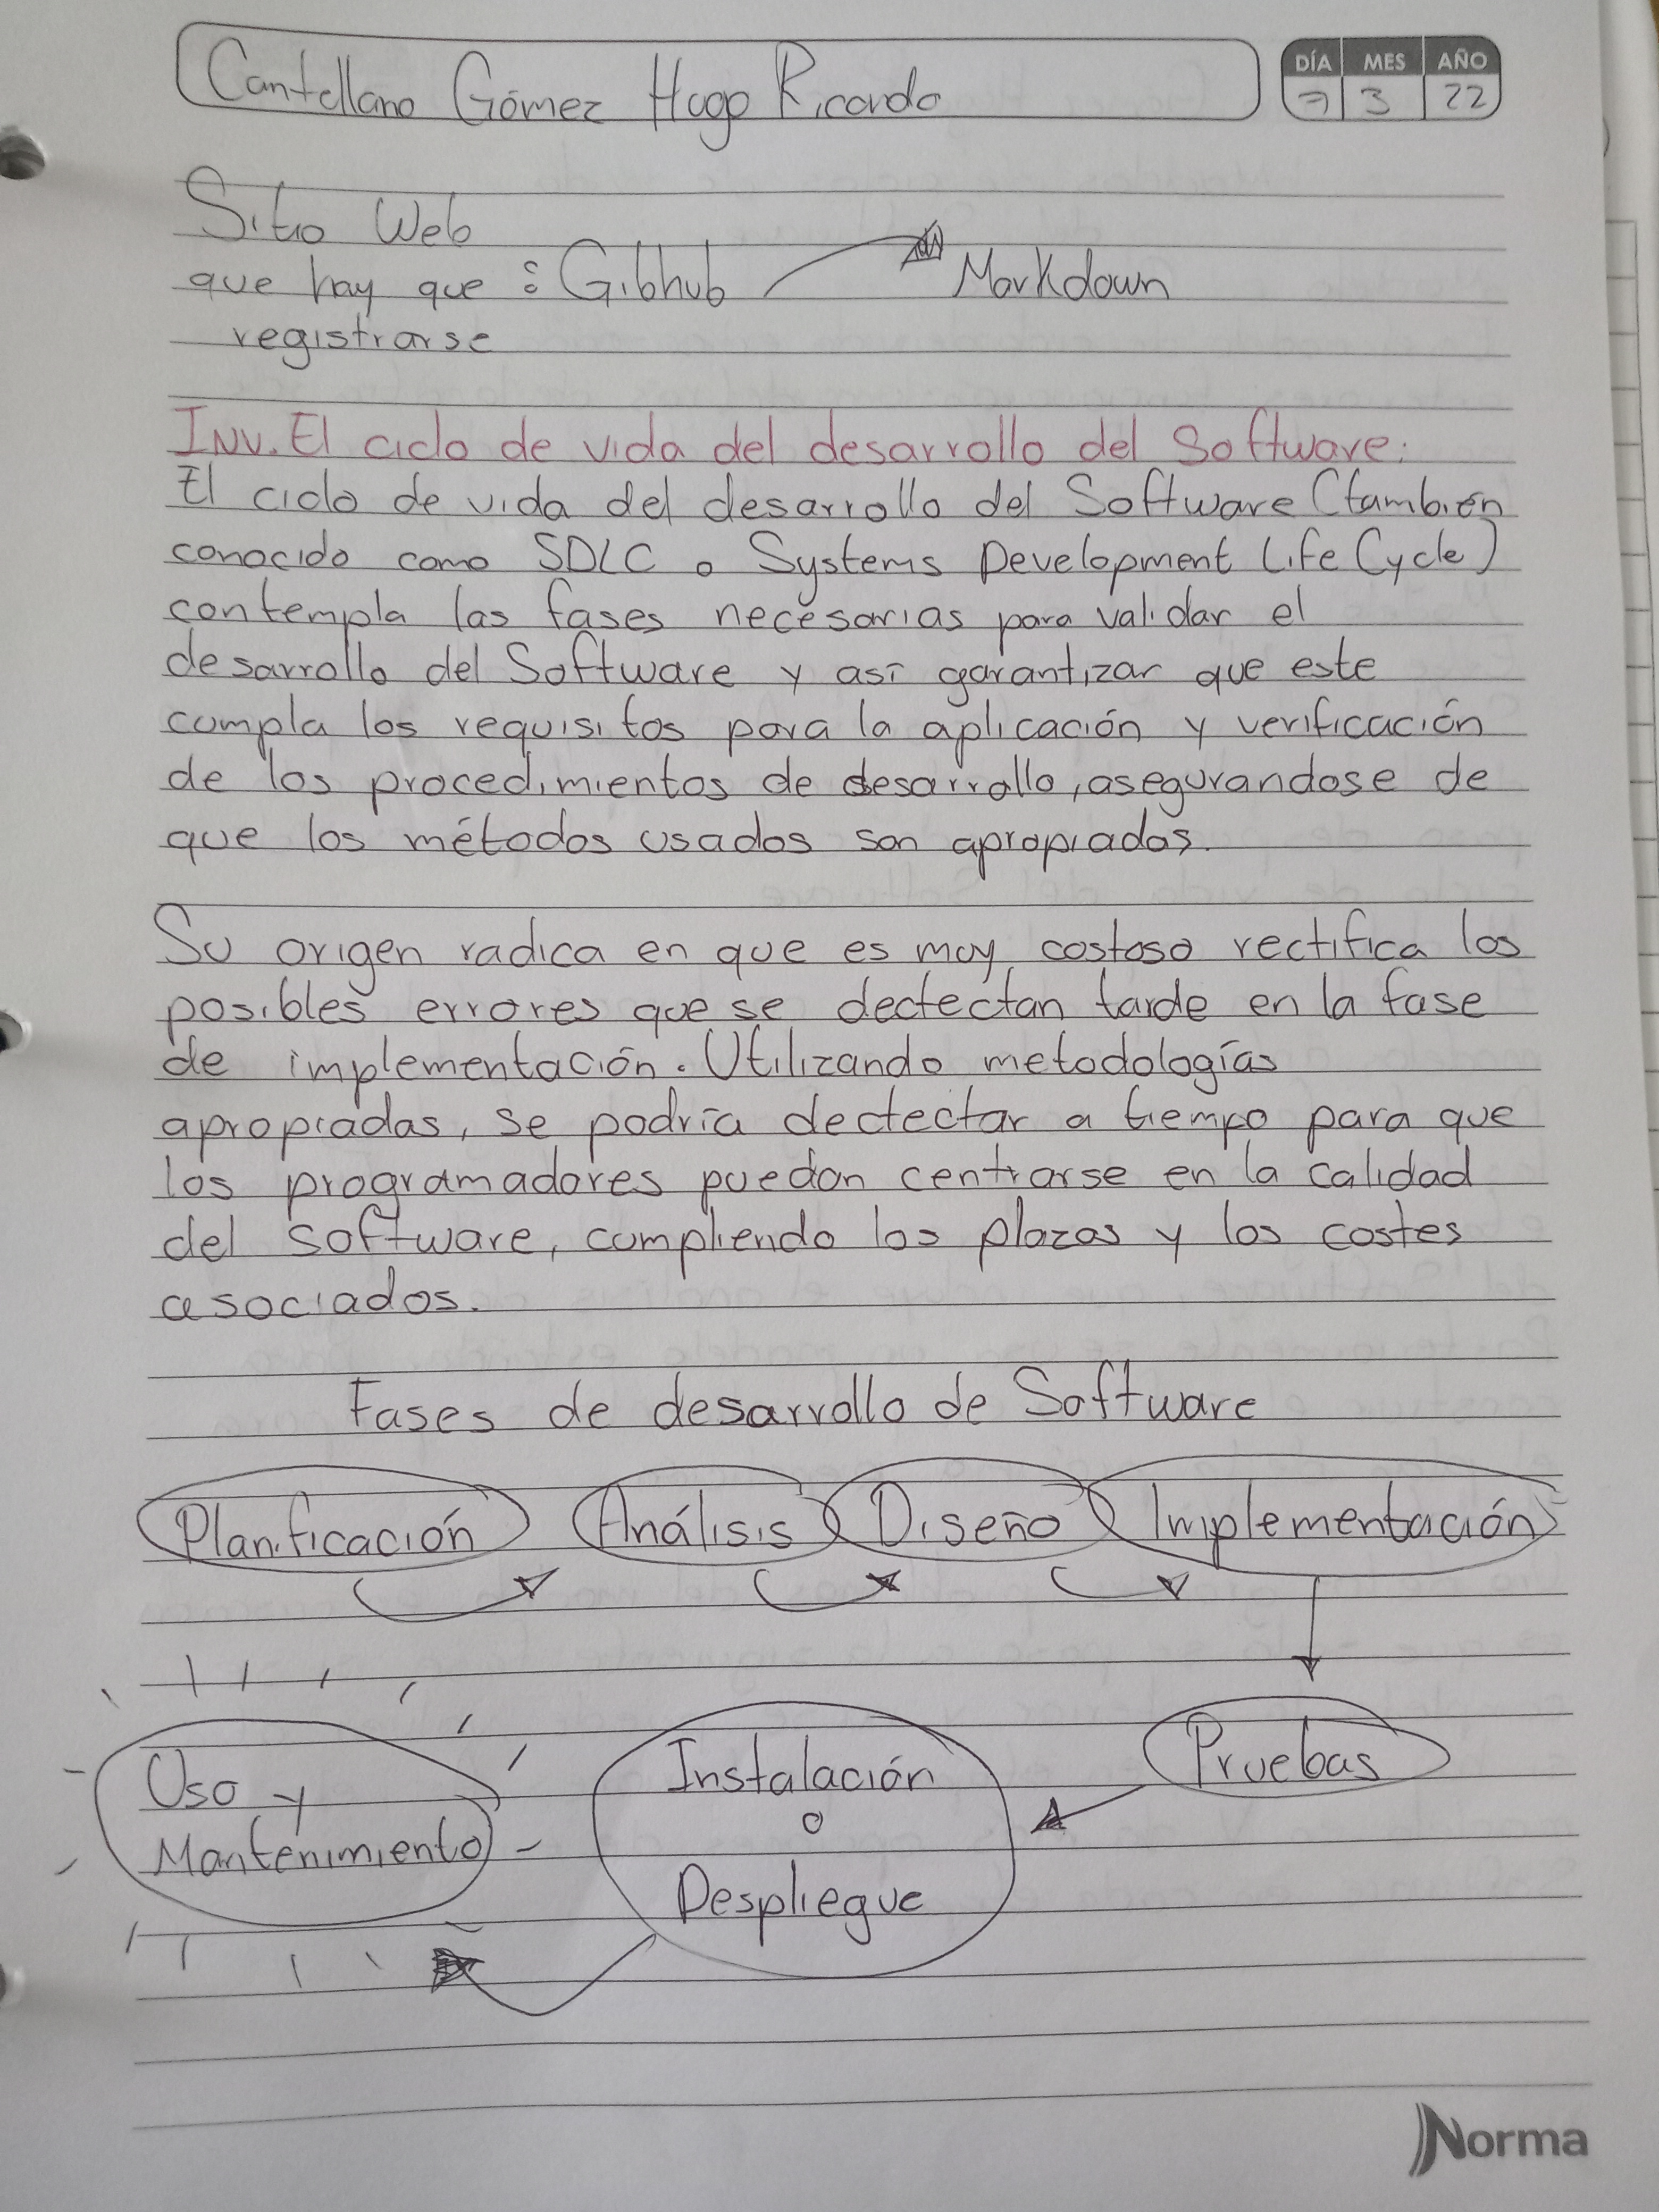 Cantellano Gómez Hugo Ricardo
DÍA MES AÑO
7 3 22
Sitio Web
que hay que : Gibhub Markdown
registrarse
Inv. El ciclo de vida del desarrollo del Software:
El ciclo de vida del desarrollo del Software (también
conocido como SDLC o Systems Development Life Cycle)
contempla las fases necesarias para validar el
desarrollo del Software y así garantizar que este
cumpla los requisitos para la aplicación y verificación
de los procedimientos de desarrollo, asegurandose de
que los métodos usados son apropiados.
Su origen radica en que es muy costoso rectifica los
posibles errores que se dectectan tarde en la fase
de implementación. Utilizando metodologías
apropiadas, se podría dectectar a tiempo para que
los programadores puedan centrarse en la calidad
del software, cumpliendo los plazos y los costes
asociados.
Fases de desarrollo de Software
Planificación Análisis Diseño Implementación
Uso y
Mantenimiento
Instalación
o
Despliegue
Pruebas
Norma